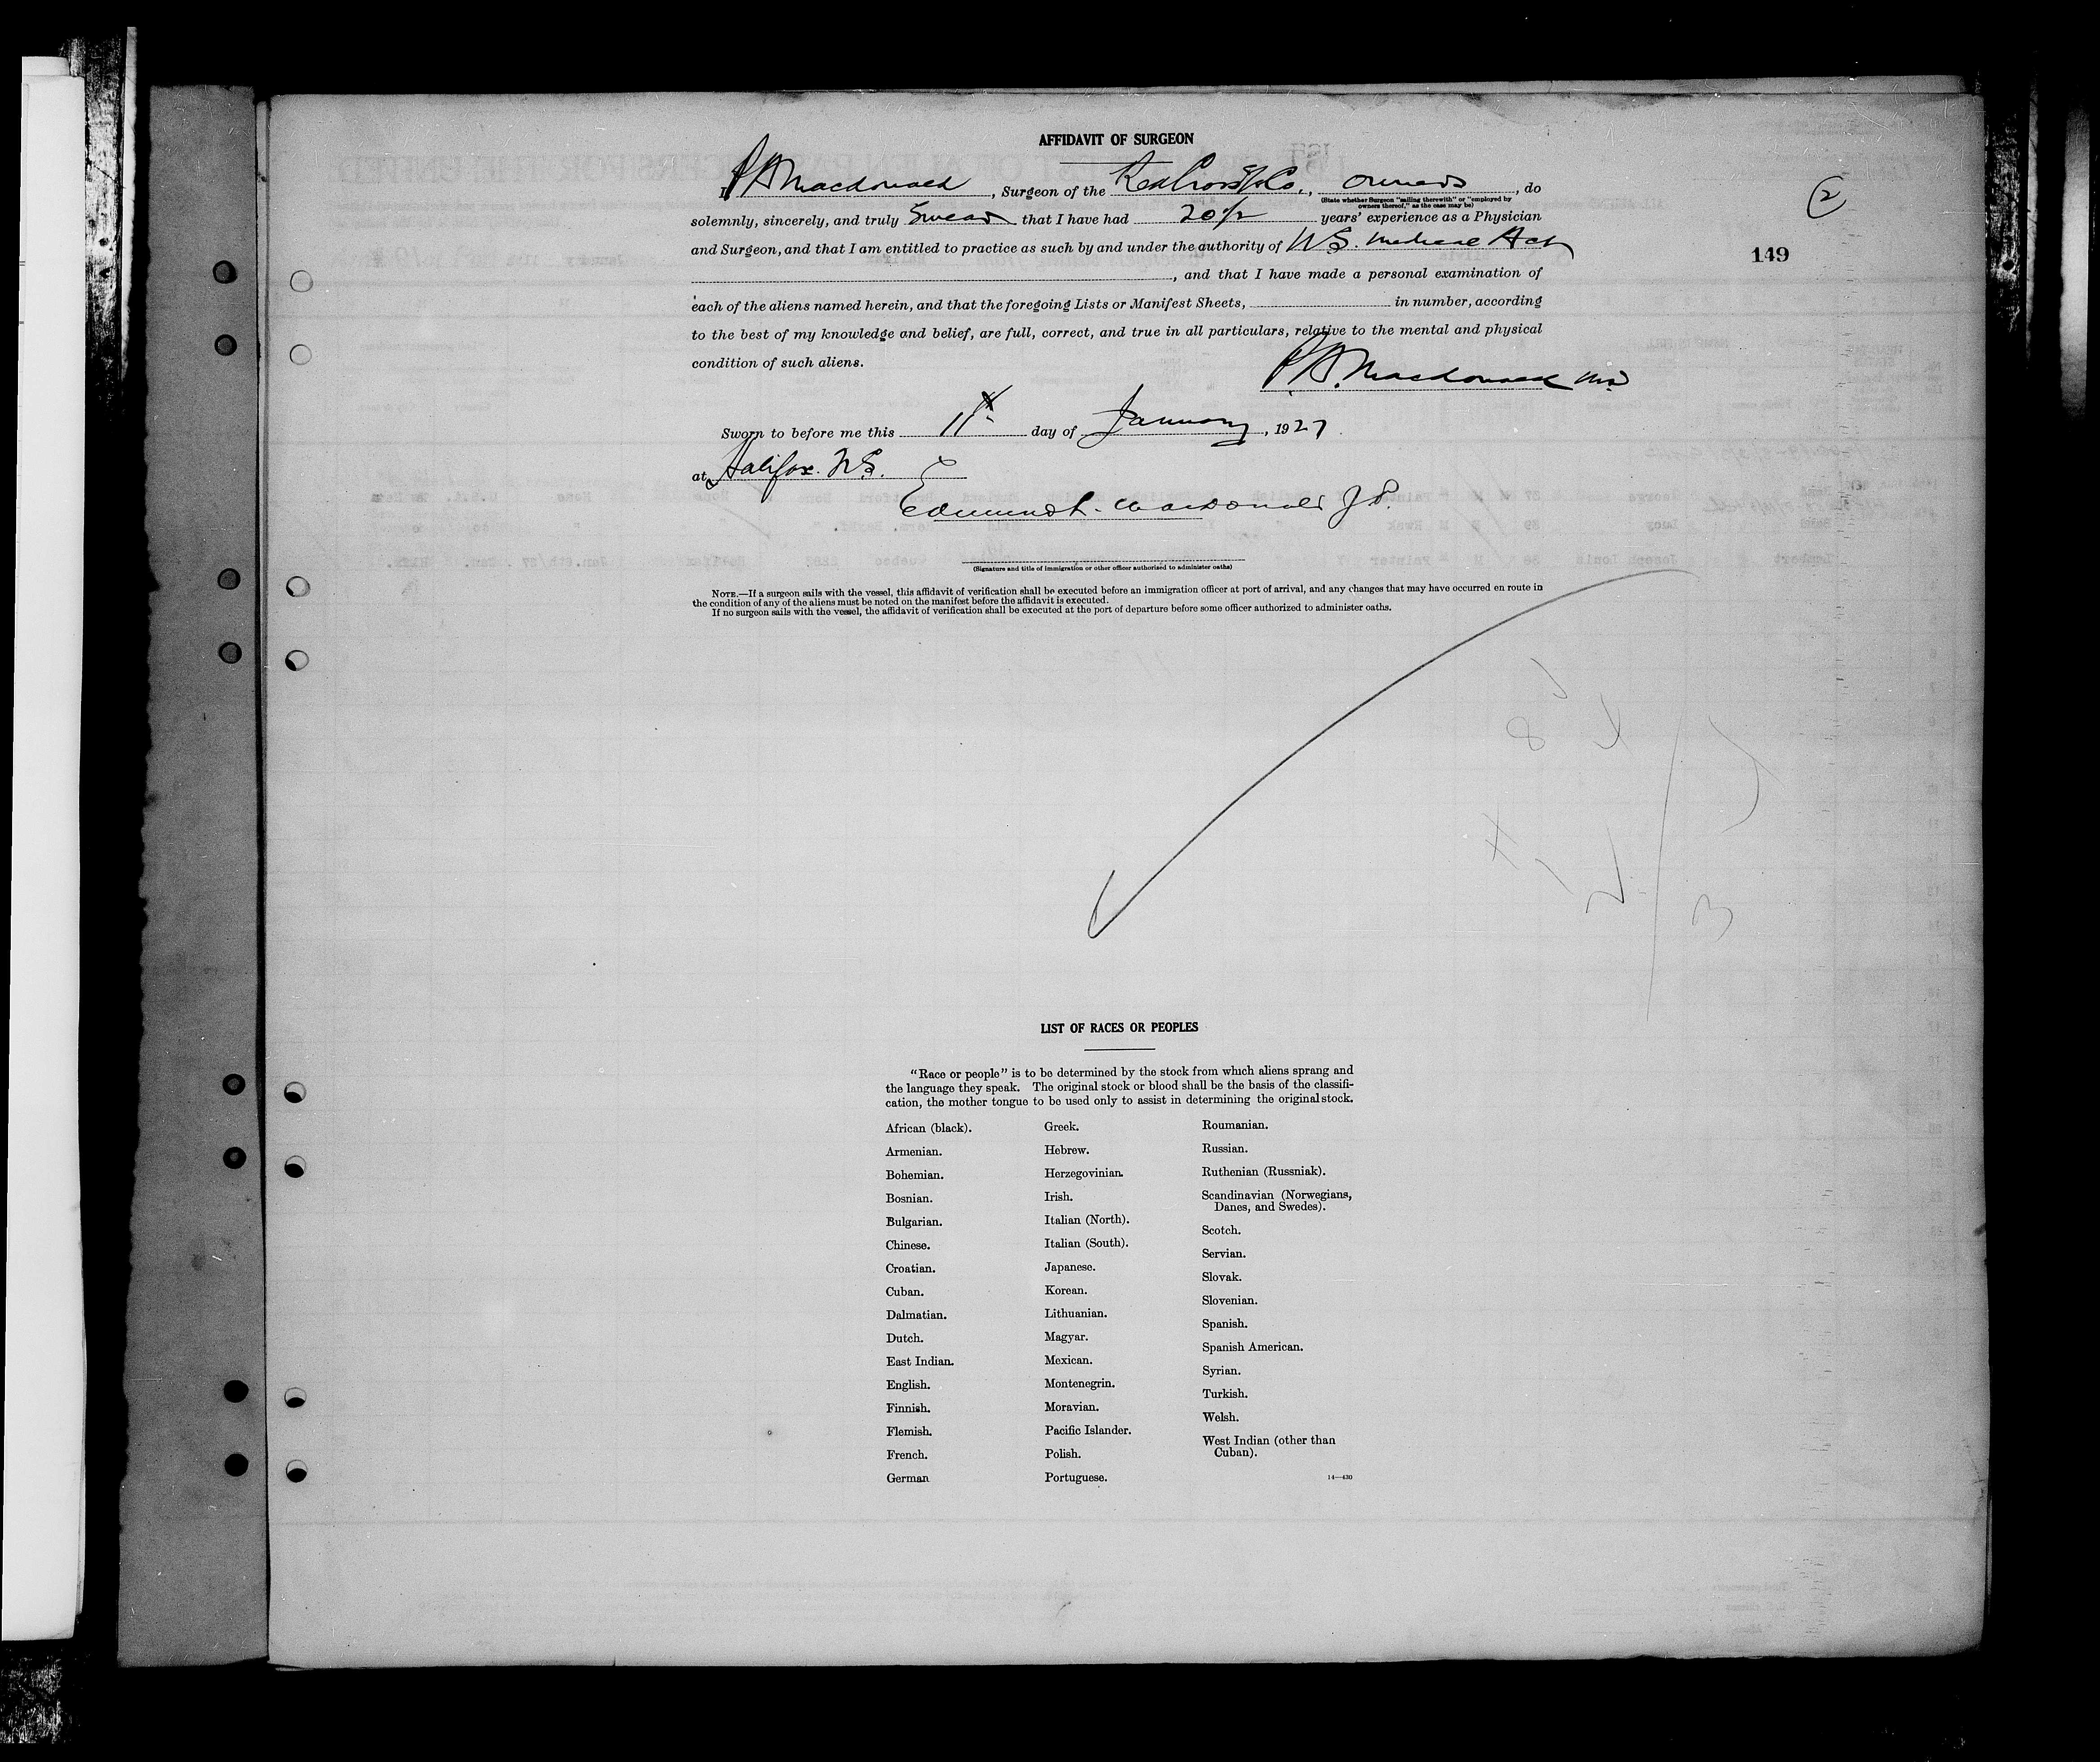 AFFIDAVIT OF SURGEON
I, P A Macdonald, Surgeon of the Red Cross S/S Co., owners, do
(State whether Surgeon "sailing therewith" or "employed by
owners thereof," as the case may be)
solemnly, sincerely, and truly Swear that I have had 20½ years' experience as a Physician
and Surgeon, and that I am entitled to practice as such by and under the authority of N.S. Medical Act
, and that I have made a personal examination of
each of the aliens named herein, and that the foregoing Lists or Manifest Sheets, in number, according
to the best of my knowledge and belief, are full, correct, and true in all particulars, relative to the mental and physical
condition of such aliens.
P. A. Macdonald MD
Sworn to before me this 11th day of January, 1927
at Halifax. N.S.
Edmund Macdonald J.P.
(Signature and title of immigration or other officer authorised to administer oaths)
NOTE.—If a surgeon sails with the vessel, this affidavit of verification shall be executed before an immigration officer at port of arrival, and any changes that may have occurred en route in
the condition of any of the aliens must be noted on the manifest before the affidavit is executed.
If no surgeon sails with the vessel, the affidavit of verification shall be executed at the port of departure before some officer authorized to administer oaths.
2
149
8 4
2
3
LIST OF RACES OR PEOPLES
"Race or people" is to be determined by the stock from which aliens sprang and
the language they speak. The original stock or blood shall be the basis of the classifi-
cation, the mother tongue to be used only to assist in determining the original stock.
African (black).
Armenian.
Bohemian.
Bosnian.
Bulgarian.
Chinese.
Croatian.
Cuban.
Dalmatian.
Dutch.
East Indian.
English.
Finnish.
Flemish.
French.
German
Greek.
Hebrew.
Herzegovinian.
Irish.
Italian (North).
Italian (South).
Japanese.
Korean.
Lithuanian.
Magyar.
Mexican.
Montenegrin.
Moravian.
Pacific Islander.
Polish.
Portuguese.
Roumanian.
Russian.
Ruthenian (Russniak).
Scandinavian (Norwegians,
Danes, and Swedes).
Scotch.
Servian.
Slovak.
Slovenian.
Spanish.
Spanish American.
Syrian.
Turkish.
Welsh.
West Indian (other than
Cuban).
14—430